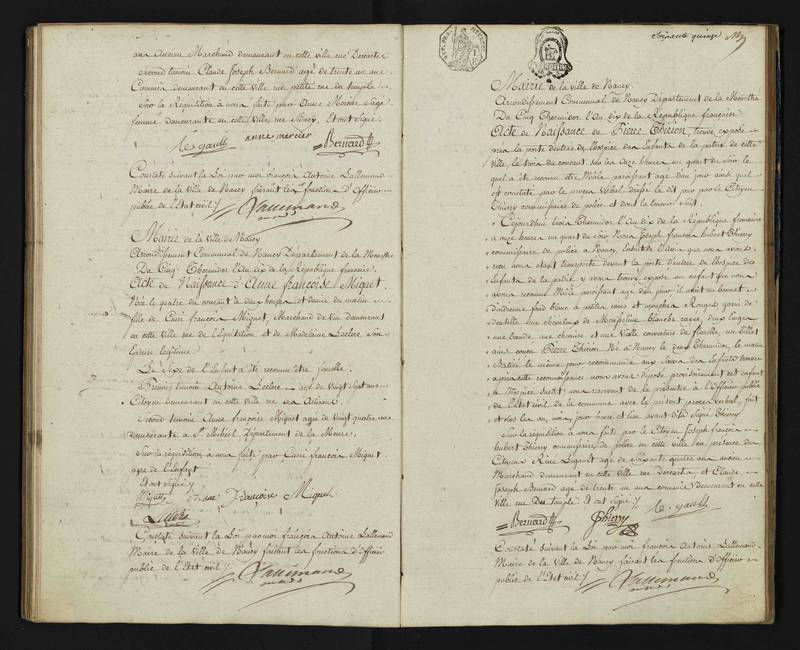 aux Ancien Marchand demeurant en cette ville rue Descartes
Second temoin Claude Joseph Bernard agé de trente un ans
Commis demeurant en cette ville rue petite rue du temple
Sur la Réquisition à nous faite par Anne Mercier Sage
femme demeurante en cette ville rue Et ont signé
le gault anne mercier Bernard
Constaté suivant la Loi par moi françois Antoine Lallemand
Maire de la ville de Nancy faisant les fonctions d'Officier
public de l'Etat civil /. Lallemand
Mairie de la ville de Nancy
Arrondissement Communal de Nancy Département de la Meurthe
Du Cinq Thermidor l'An dix de la République française
Acte de Naissance d'Anne françoise Miquet
Née le quatre du courant à deux heures et demie du matin
fille de françois Miquet, Marchand de vin demeurant
en cette ville rue de l'Equitation et de Madelaine Leclerc son
Epouse legitime
Le Sexe de l'Enfant a été reconnu être femelle.
Premier temoin Antoine Leclerc agé de vingt sept ans
Citoyen demeurant en cette ville rue des Artisans
Second temoin Anne francoise Miquet agée de vingt quatre ans
demeurante à St Mihiel Département de la Meuse
Sur la réquisition à nous faite par françois Miquet
pere de l'Enfant
Et ont signé /.
Miquet Anne Françoise Miquel
Leclerc
Constaté suivant la Loi par moi françois Antoine Lallemand
Maire de la Ville de Nancy faisant les fonctions d'Officier
public de l'Etat civil /. Lallemand
Soixante quinze
Mairie de la ville de Nancy
Arrondissement Communal de Nancy Département de la Meurthe
Du Cinq Thermidor l'An dix de la République française
Acte de Naissance de Pierre Thirion, trouvé exposé
près la porte d'entrée de l'hospice des Enfants de la patrie de cette
ville, le trois du courant, à Onze heures un quart du soir, le
quel a été reconnu être Mâle paroissant agé d'un jour ainsi qu'il
est constaté par le procès verbal dressé le dit jour par le Citoyen
Thiery commissaire de police et dont la teneur suit.
Cejourd'hui trois Thermidor l'An dix de la République française
à onze heures un quart du soir Nous Joseph françois hubert Thiery
commissaire de police à Nancy, Ensuite de l'avis que nous avons
reçu nous étant transporté devant la porte d'entrée de l'hospice des
Enfants de la patrie y avons trouvé exposé un enfant que nous
avons reconnu Mâle paroissant agé d'un jour il avait un bonnet
d'indienne fond blanc à petites raies et mouches Rouges garni de
dentelle, un fichu de Mousseline blanche rayée, deux langes
une bande, une chemise et une vieille couverture de flanelle, un billet
ainsi conçu Pierre Thirion Né à Nancy le deux Thermidor, le matin
Batisé le meme jour recommandé aux Soins des Enfants trouvés
après cette reconnoissance nous avons déposé provisoirement cet enfant
à l'hospice susdit nous réservant de le présenter à l'Officier public
de l'Etat civil de la commune avec le présent procès verbal, fait
et clos les an, mois, jour heure et lieu avant dits Signé Thiery
Sur la réquisition à nous faite par le Citoyen Joseph françois
hubert Thiery commissaire de police en cette ville, en présence des
Citoyens René Legault agé de Soixante quatre ans ancien
Marchand demeurant en cette ville rue Descartes et Claude
Joseph Bernard agé de trente un ans commis demeurant en cette
ville rue Du temple. Et ont signé /.
Bernard Thiery le gault
Constaté suivant la Loi par moi françois Antoine Lallemand
Maire de la Ville de Nancy faisant les fonctions d'Officier
public de l'Etat civil /. Lallemand